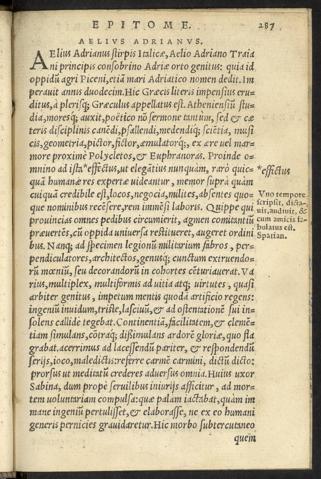 EPITOME. 287
AELIVS ADRIANVS.
AElius Adrianus stirpis Italicæ, Aelio Adriano Traia
ni principis consobrino Adriæ orto genitus: quia id
oppidũ agri Piceni, etiã mari Adriatico nomen dedit. Im
perauit annis duodecim. Hic Græcis literis impensius eru-
ditus, à plerisq; Græculus appellatus est. Atheniensiũ stu-
dia, moresq; auxit, poëtico nõ sermone tantum, sed & cæ
teris disciplinis canẽdi, psallendi, medendiq; sciẽtia, musi
cis, geometria, pictor, fictor, æmulatorq; ex ære uel mar-
more proximè Polycletos, & Euphranoras. Proinde o-
mnino ad ista *effectus, ut elegãtius nunquàm, rarò quic- *effictus
quã humanæ res expertæ uideantur, memor suprà quàm
cuiquã credibile est, locos, negocia, milites, absentes quo- Vno tempore
que nominibus recẽsere, rem immẽsi laboris. Quippe qui scripsit, dicta-
uit, audiuit, &
prouincias omnes pedibus circumierit, agmen comitantiũ cum amicis fa-
præuertẽs, cũ oppida uniuersa restitueret, augeret ordini bulatus est.
bus. Nanq; ad specimen legionũ militarium fabros, per- Spartian.
pendiculatores, architectos, genusq; cunctum extruendo-
rũ mœniũ, seu decorandorũ in cohortes cẽturiauerat. Va
rius, multiplex, multiformis ad uitia atq; uirtutes, quasi
arbiter genitus, impetum mentis quodã artificio regens:
ingeniũ inuidum, triste, lasciuũ, & ad ostentationẽ sui in-
solens callidè tegebat. Continentiã, facilitatem, & clemẽ-
tiam simulans, cõtraq; dißimulans ardorẽ gloriæ, quo fla
grabat. acerrimus ad lacessendũ pariter, & respondendũ
serijs, ioco, maledictis: referre carmẽ carmini, dictũ dicto:
prorsus ut meditatũ crederes aduersus omnia. Huius uxor
Sabina, dum propè seruilibus iniurijs afficitur, ad mor-
tem uoluntariam compulsa: quæ palam iactabat, quàm im
mane ingeniũ pertulisset, & elaborasse, ne ex eo humani
generis pernicies grauidaretur. Hic morbo subtercutaneo
quem